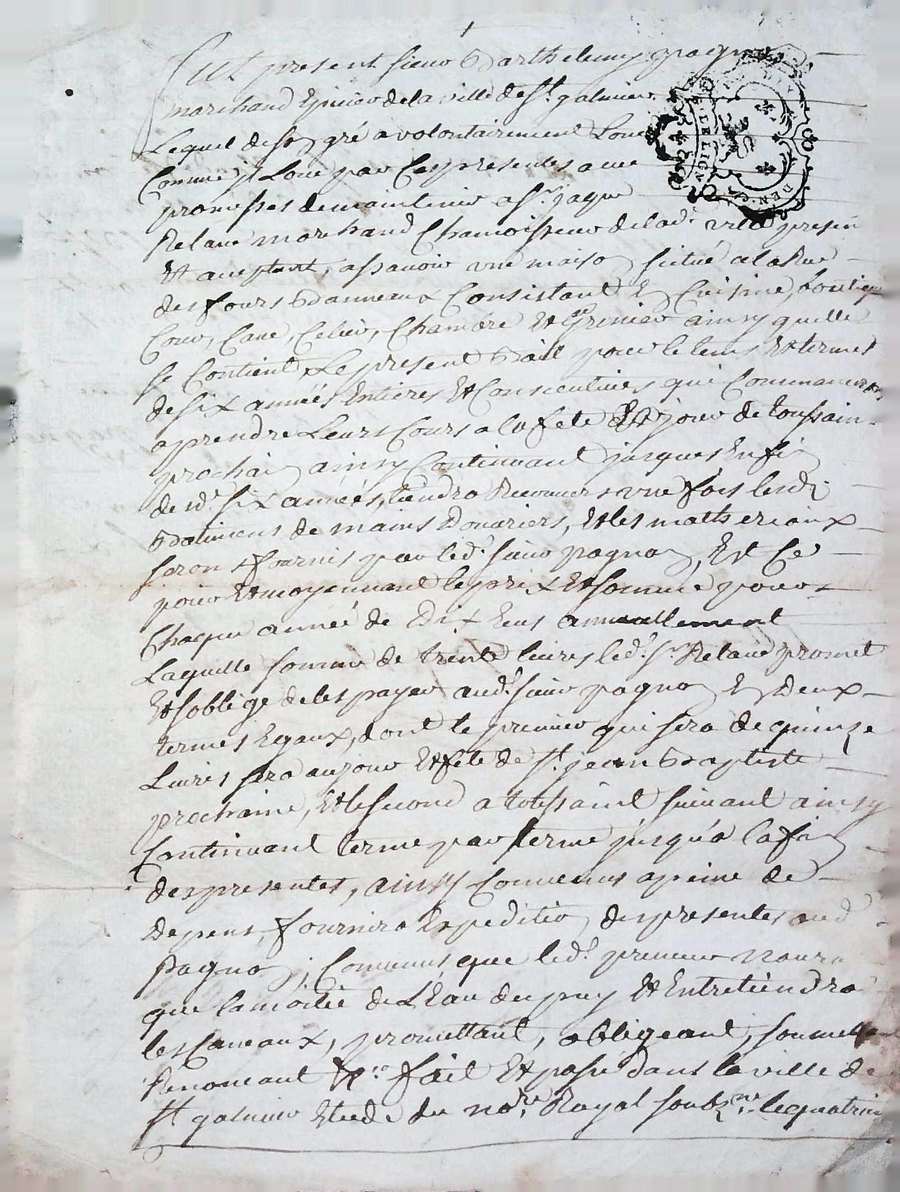 Fut present sieur Barthelemy pagno
marchand Epicier de la ville de St. galmier
Lequel de son gré a volontairement Loué
Comme jl Loue par Ces presentes avec
promesses de maintenir a Sr. jaque
Relave marchand Chamoisseur de lad. ville presen
Et aceptant, assavoir une maison située a la Rue
des fours Banneaux Consistant En Cuisine, boutique
Cour, Cave, Celier, Chambre Et Grenier ainsy quelle
se Contient Le present Bail pour le tems Et termes
de six années Entieres Et Consecutives qui Commanceron
a prendre Leurs Cours a la fete Et jour de toussain
prochain ainsy Continuant jusques En fin
de sd. six années, tiendra Recouvers une fois lesd.
Batimens de mains Douvriers, Et les matheriaux
seron fournis par led. sieur pagnon, Et Ce
pour Et moyennant le prix Et somme pour
Chaque année de Dix Ecus annuellement
Laquelle somme de trente livres led. Sr. Relave promet
Et soblige de les payer aud. sieur pagnon En Deux
termes Egaux, dont le premier qui sera de quinze
Livres sera au jour Et fete de St. jean Baptiste
prochaine, Et le second a toussaint suivant ainsy
Continuant terme par terme jusqu'a la fin
des presentes, ainsy Convenus a peine de
Depens, fournira Expedition des presentes aud
pagnon; Convenus que led. preneur naura
que la moitié de L'Eau du puy Et Entretiendra
les Caneaux, promettant, obligeant, soumettant
Renoncant &ca. fait Et passé dans la ville de
St galmier Etude du nore. Royal soubzné. le quatrie
DEN.
DE LION